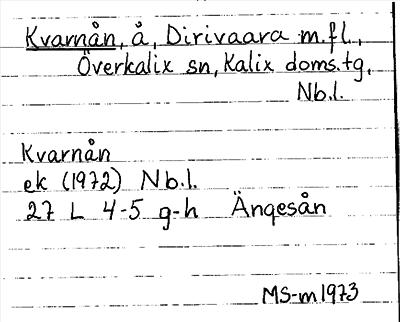 Kvarnån, å, Dirivaara m.fl.,
Överkalix sn, Kalix doms.tg,
Nb.l.
Kvarnån
ek (1972) Nb.l.
27 L 4-5 g-h Ängesån
MS-m1973